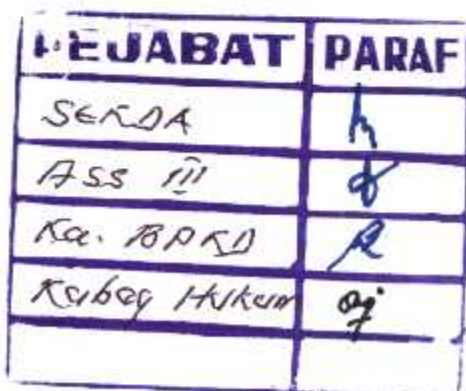 PEJABAT PARAF
SEKDA
ASS III
Ka. BPKD
Kabag Hukum